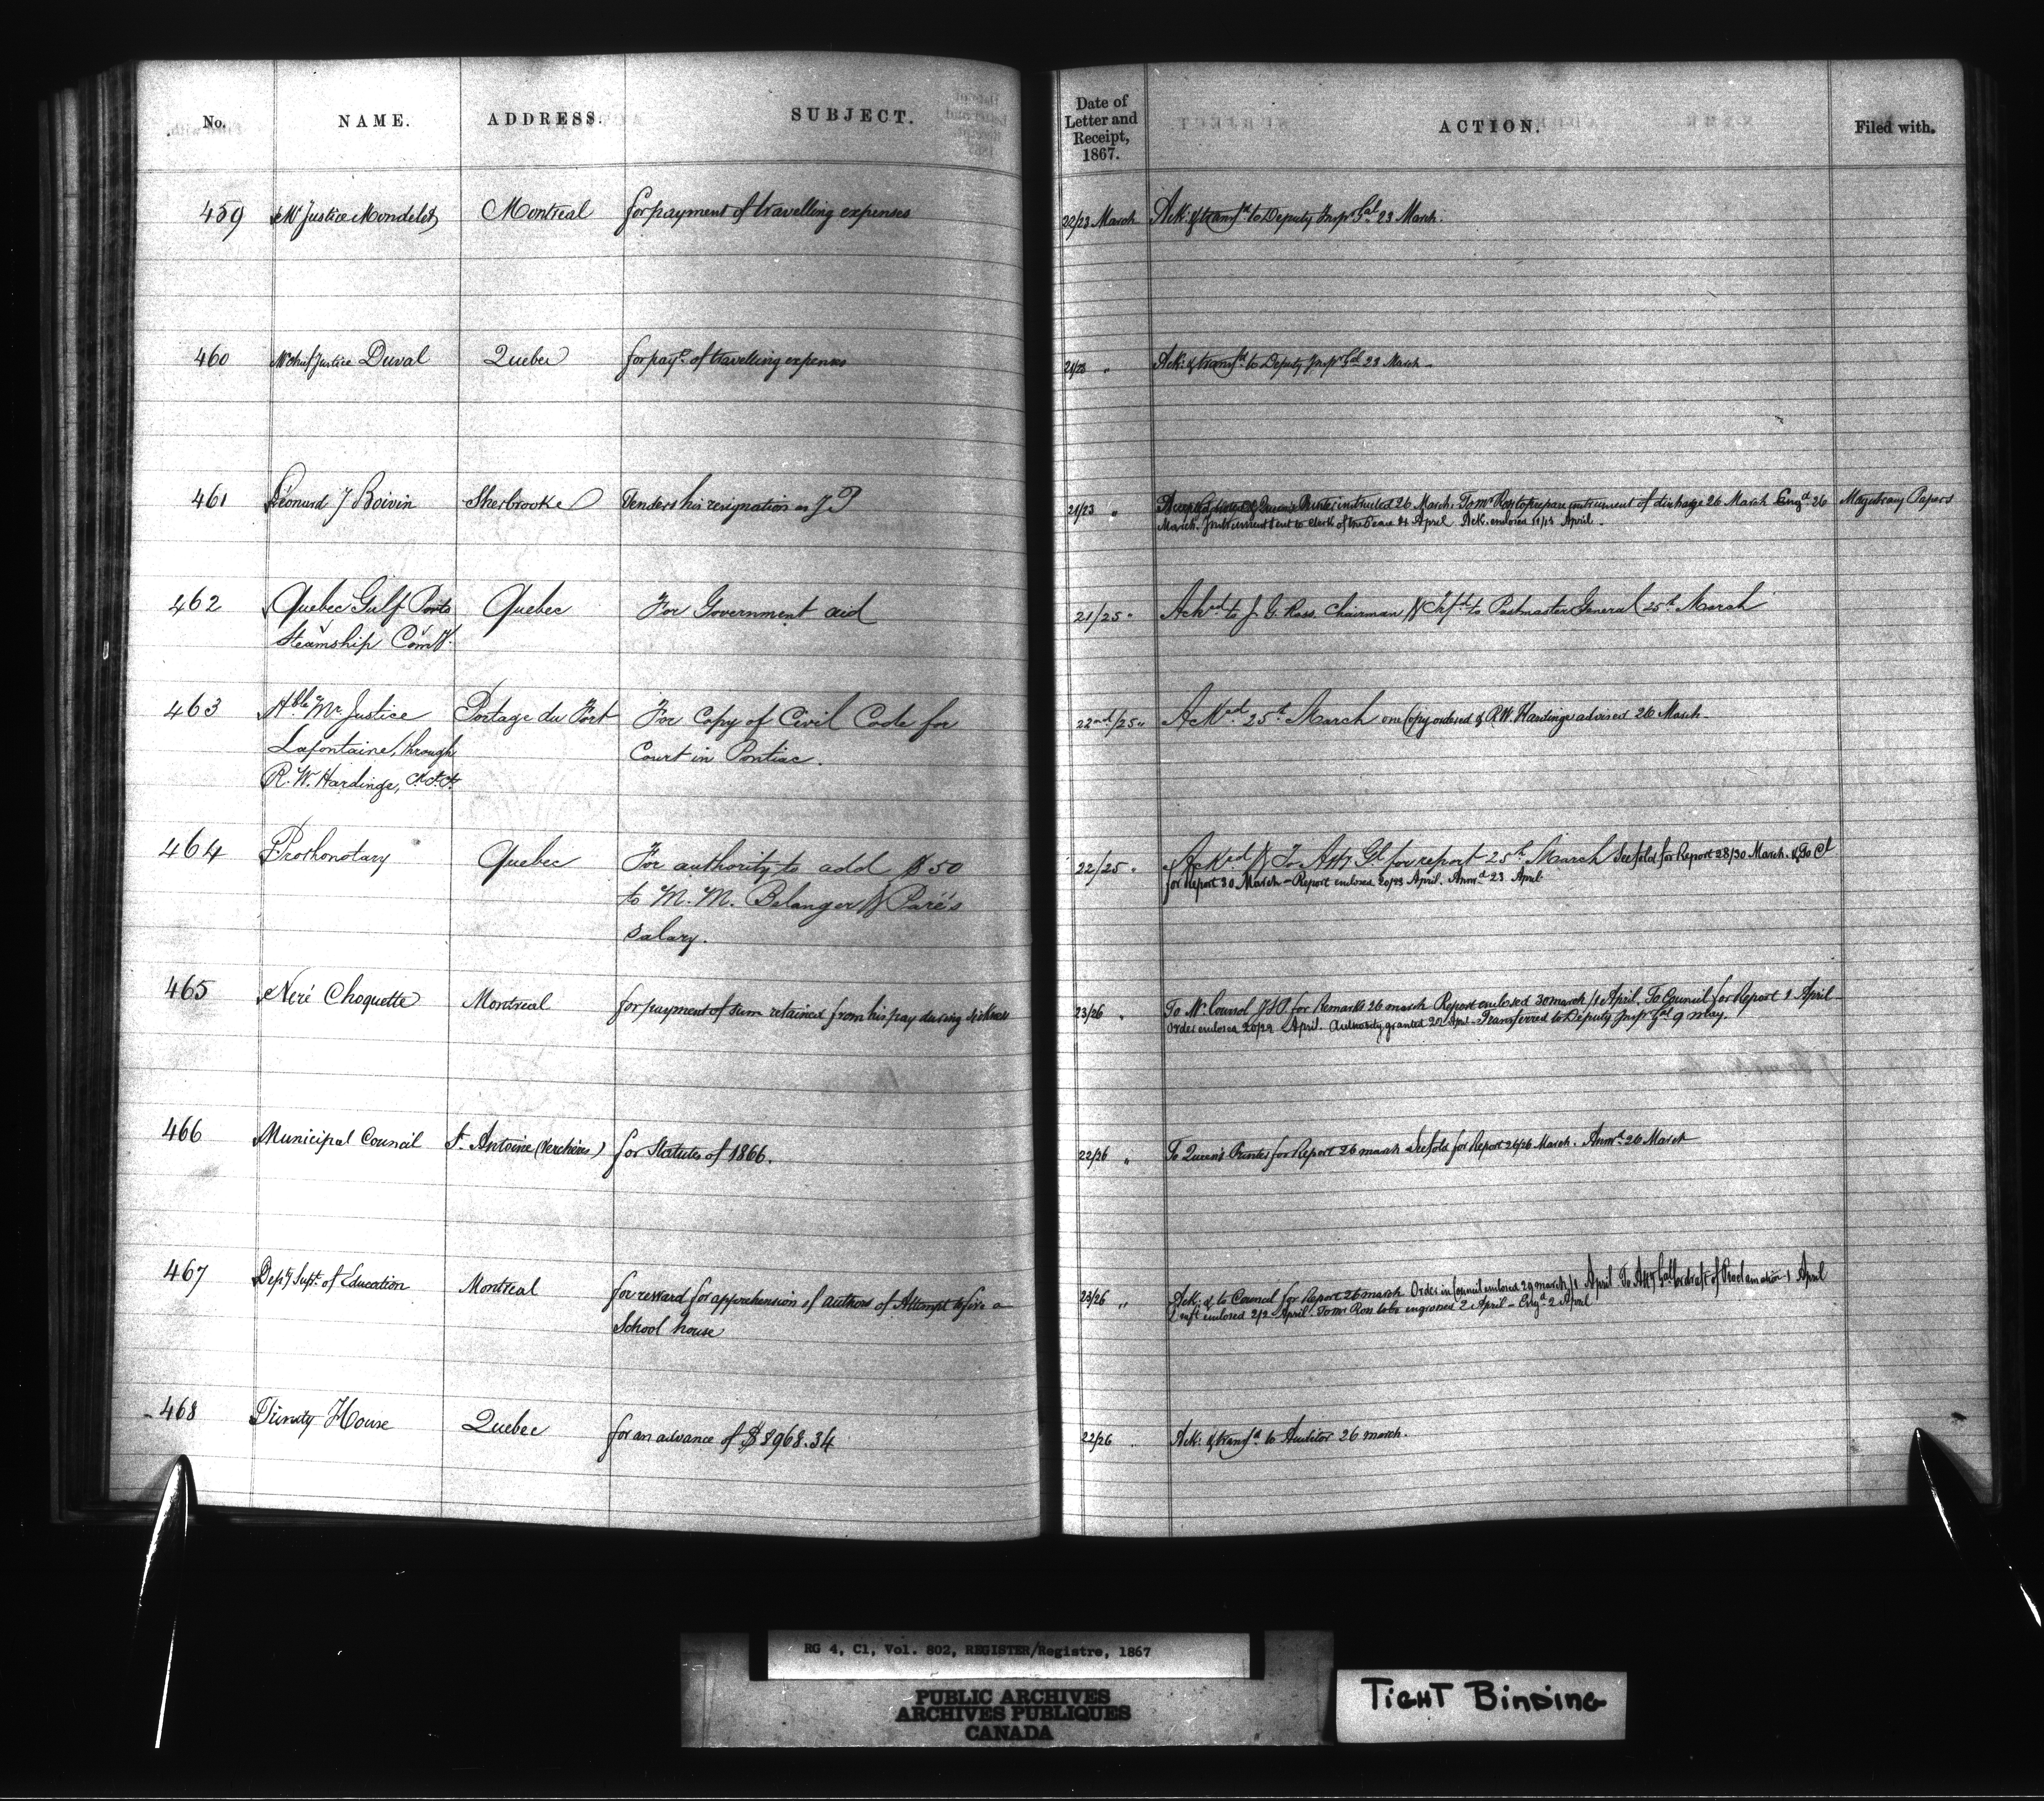 No. NAME. ADDRESS. SUBJECT. Date of Letter and Receipt, 1867. ACTION. Filed with.
459 Mr Justice Mondelet Montreal for payment of travelling expenses 22/23 March Ack: & transfd to Deputy Inspr Gal 23 March.
460 Mr Chief Justice Duval Quebec for payt. of travelling expenses 21/23 " Ack: & transfd to Deputy Inspr Gal 23 March
461 Léonard J Boivin Sherbrooke Tenders his resignation as J P 21/23 " Accepted, & Queen's Printer instructed 26 March. To Mr Ross to prepare instrument of discharge 26 March Engd 26 Magistracy Papers
March. Instrument sent to Clerk of the Peace April Ack. enclosed 11/13 April.
462 Quebec Gulf Ports Quebec For Government aid 21/25 " Ackd to J. G. Ross, Chairman & Trfd to Postmaster General 25th March
Steamship Comy.
463 Hble Mr Justice Portage du Fort For Copy of Civil Code for 22nd/25 " Ackd 25th March one Copy ordered & R.W. Hardinge advised 26 March
Lafontaine, through Court in Pontiac.
R. W. Hardinge,
464 Prothonotary Quebec For authority to add $50 22/25 " Ackd & To Atty Gl for report 25th March See fold for Report 28/30 March. & To Ct
to M. M. Belanger & Paré's for Report 30 March - Report enclosed April. Answd 23 April
Salary.
465 Neré Choquette Montreal for payment of sum retained from his pay during sickness 23/26 " To Mr Coursol JSP for Remarks 26 march Report enclosed 30 march/1 April. To Council for Report 1 April
Order enclosed 20/29 April. Authority granted April - Transferred to Deputy Inspr Gal 9 may.
466 Municipal Council St. Antoine (Verchères) for Statutes of 1866. 22/26 " To Queen's Printer for Report 26 march See fold for Report 26/26 March. Answd 26 March
467 Depty Supt. of Education Montreal for reward for apprehension of authors of Attempt to fire a 23/26 " Ack: & to Council for Report 26 march Order in Council enclosed 29 march/1 April To Atty Gal for draft of Proclamation 1 April
School house Draft enclosed 2/2 April. To Mr Ross to be engrossed 2 April - Engd 2 April
468 Trinity House Quebec for an advance of $8968.34 22/26 " Ack: & transfd to Auditor 26 march.
RG 4, C1, Vol. 802, REGISTER/Registre, 1867
PUBLIC ARCHIVES
ARCHIVES PUBLIQUES
CANADA
TIGHT BINDING